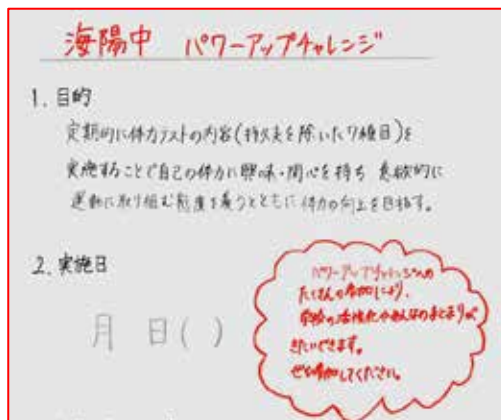 海陽中 パワーアップチャレンジ
1. 目的
定期的に体力テストの内容(持久走を除いた7種目)を
実施することで自己の体力に興味・関心を持ち 意欲的に
運動に取り組む態度を養うとともに体力の向上を目指す。
2. 実施日
月 日( )
パワーアップチャレンジへの
たくさんの参加により、
学校の活性化やみんなのまとまりが
きたいできます。
ぜひ参加してください。